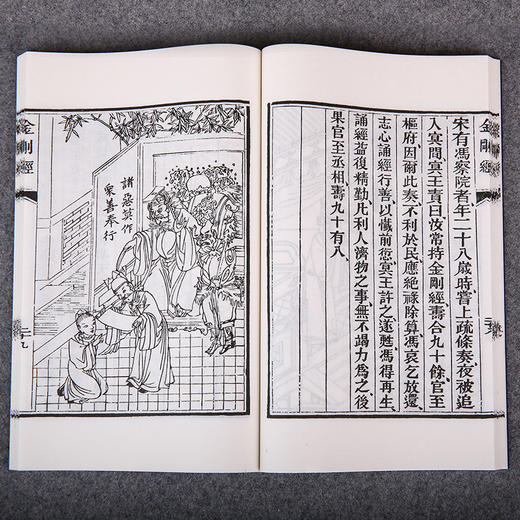 金剛經
宋有馮察院者年二十八歲時嘗上疏條奏夜被追
入冥間冥王責曰汝常持金剛經壽合九十餘官至
樞府因爾此奏不利於民應絕祿除算馮哀乞放還
志心誦經行善以懺前愆冥王許之遂甦馮得再生
誦經益復精勤凡利人濟物之事無不竭力爲之後
果官至丞相壽九十有八
諸惡莫作
衆善奉行
金剛經